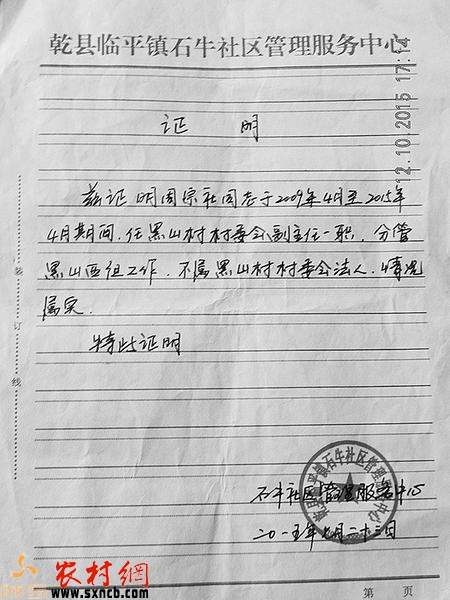 乾县临平镇石牛社区管理服务中心
12.10.2015 17:14
证 明
兹证明周宗社同志于2009年4月至2015年
4月期间,任黑山村村委会副主任一职,分管
黑山西组工作,不属黑山村村委会法人,情况
属实.
特此证明
装 订 线
乾县临平镇石牛社区管理服务中心
石牛社区管理服务中心
二0一五年 月二十三日
农村網
www.sxncb.com
第 页